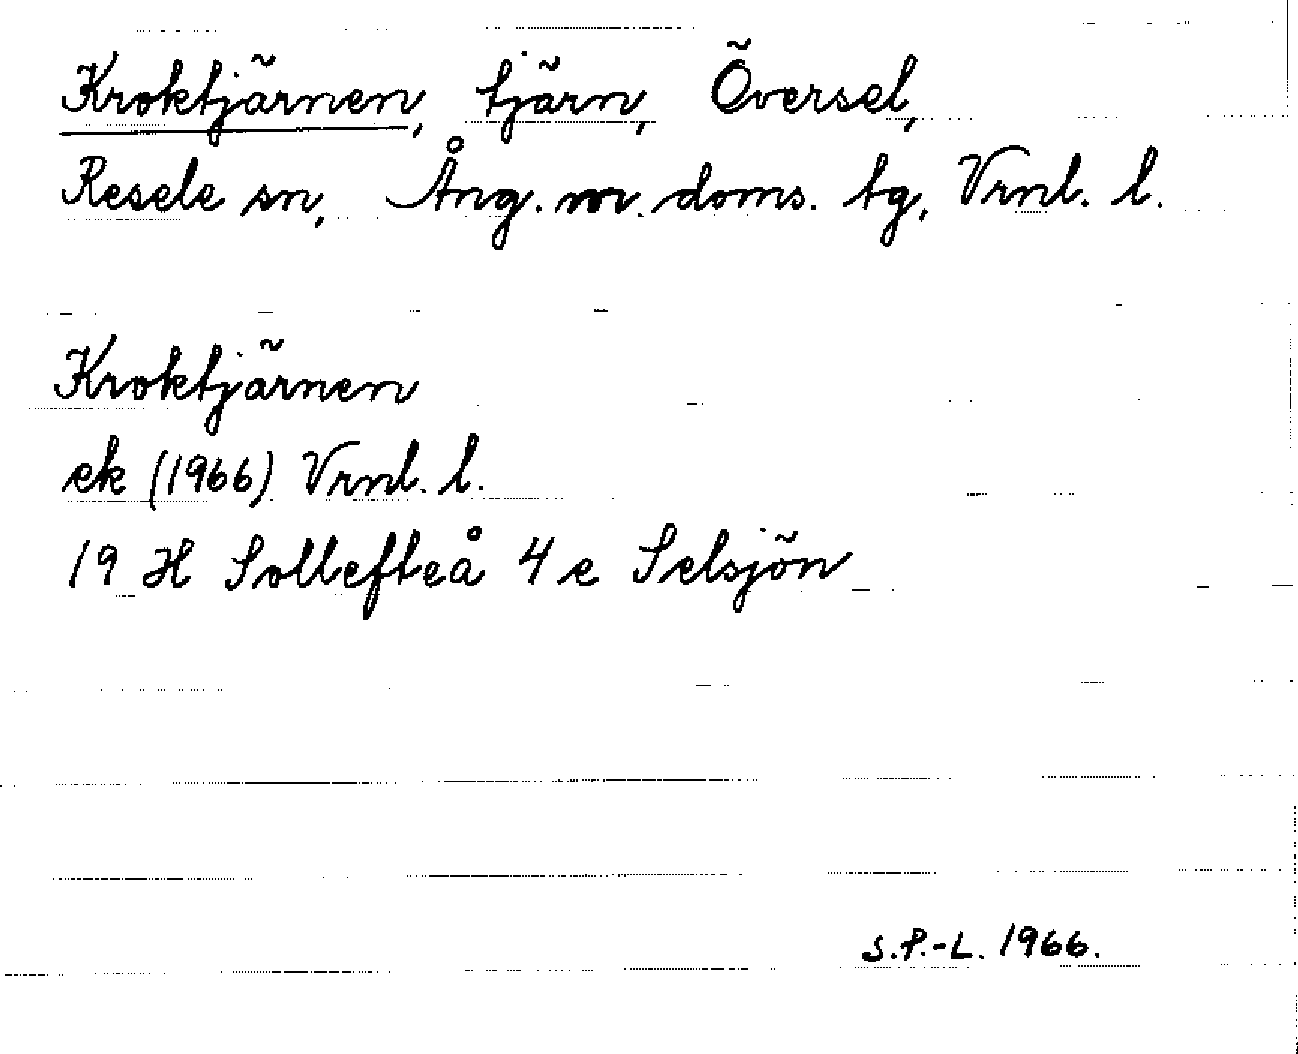 Kroktjärnen, tjärn, Översel,
Resele sn, Ång. m. doms. tg, Vrnl. l.
Kroktjärnen
ek (1966) Vrnl. l.
19 H Sollefteå 4 e Selsjön
S.P.-L. 1966.